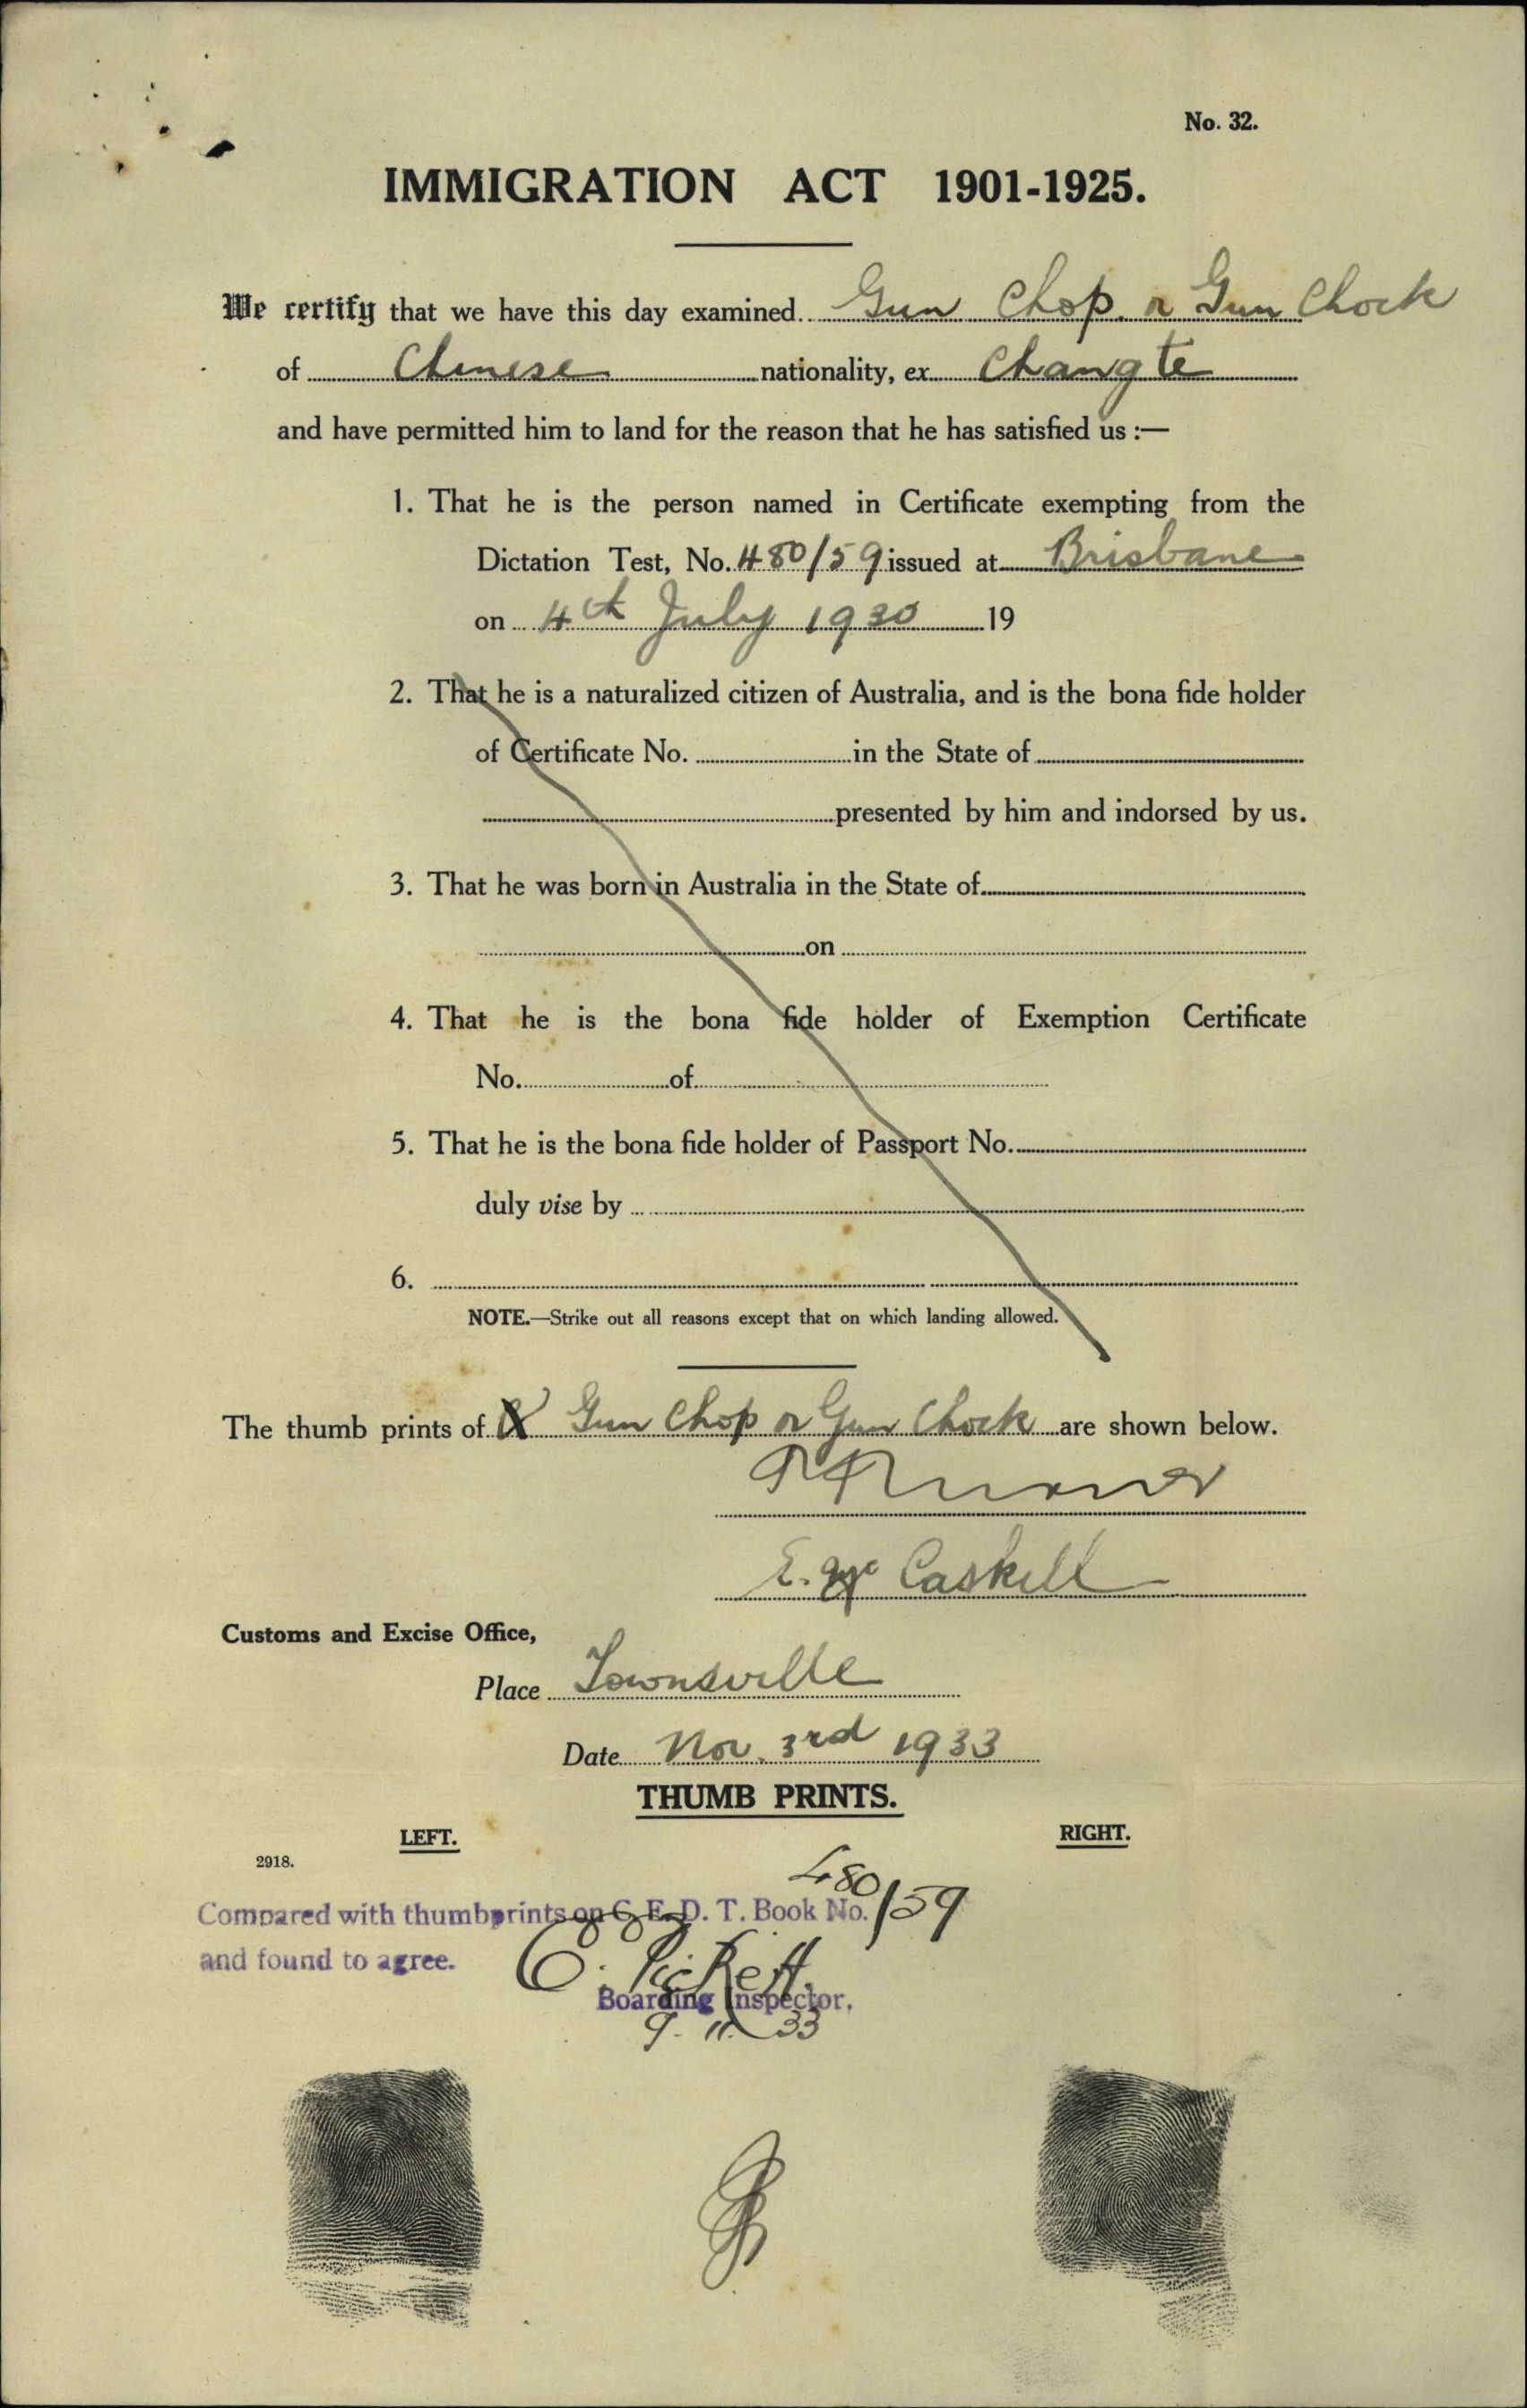 No. 32.
IMMIGRATION ACT 1901-1925.
We certify that we have this day examined Gun Chop or Gun Chock
of Chinese nationality, ex Changte
and have permitted him to land for the reason that he has satisfied us :—
1. That he is the person named in Certificate exempting from the
Dictation Test, No. 480/59 issued at Brisbane
on 4th July 1930 19
2. That he is a naturalized citizen of Australia, and is the bona fide holder
of Certificate No. in the State of
presented by him and indorsed by us.
3. That he was born in Australia in the State of
on
4. That he is the bona fide holder of Exemption Certificate
No. of
5. That he is the bona fide holder of Passport No.
duly vise by
6.
NOTE.—Strike out all reasons except that on which landing allowed.
The thumb prints of Gun Chop or Gun Chock are shown below.
E. Mc Caskill
Customs and Excise Office,
Place Townsville
Date Nov. 3rd 1933
THUMB PRINTS.
LEFT. RIGHT.
2918.
Compared with thumbprints on C. E. D. T. Book No. 480/59
and found to agree.
Boarding Inspector.
9. 11. 33